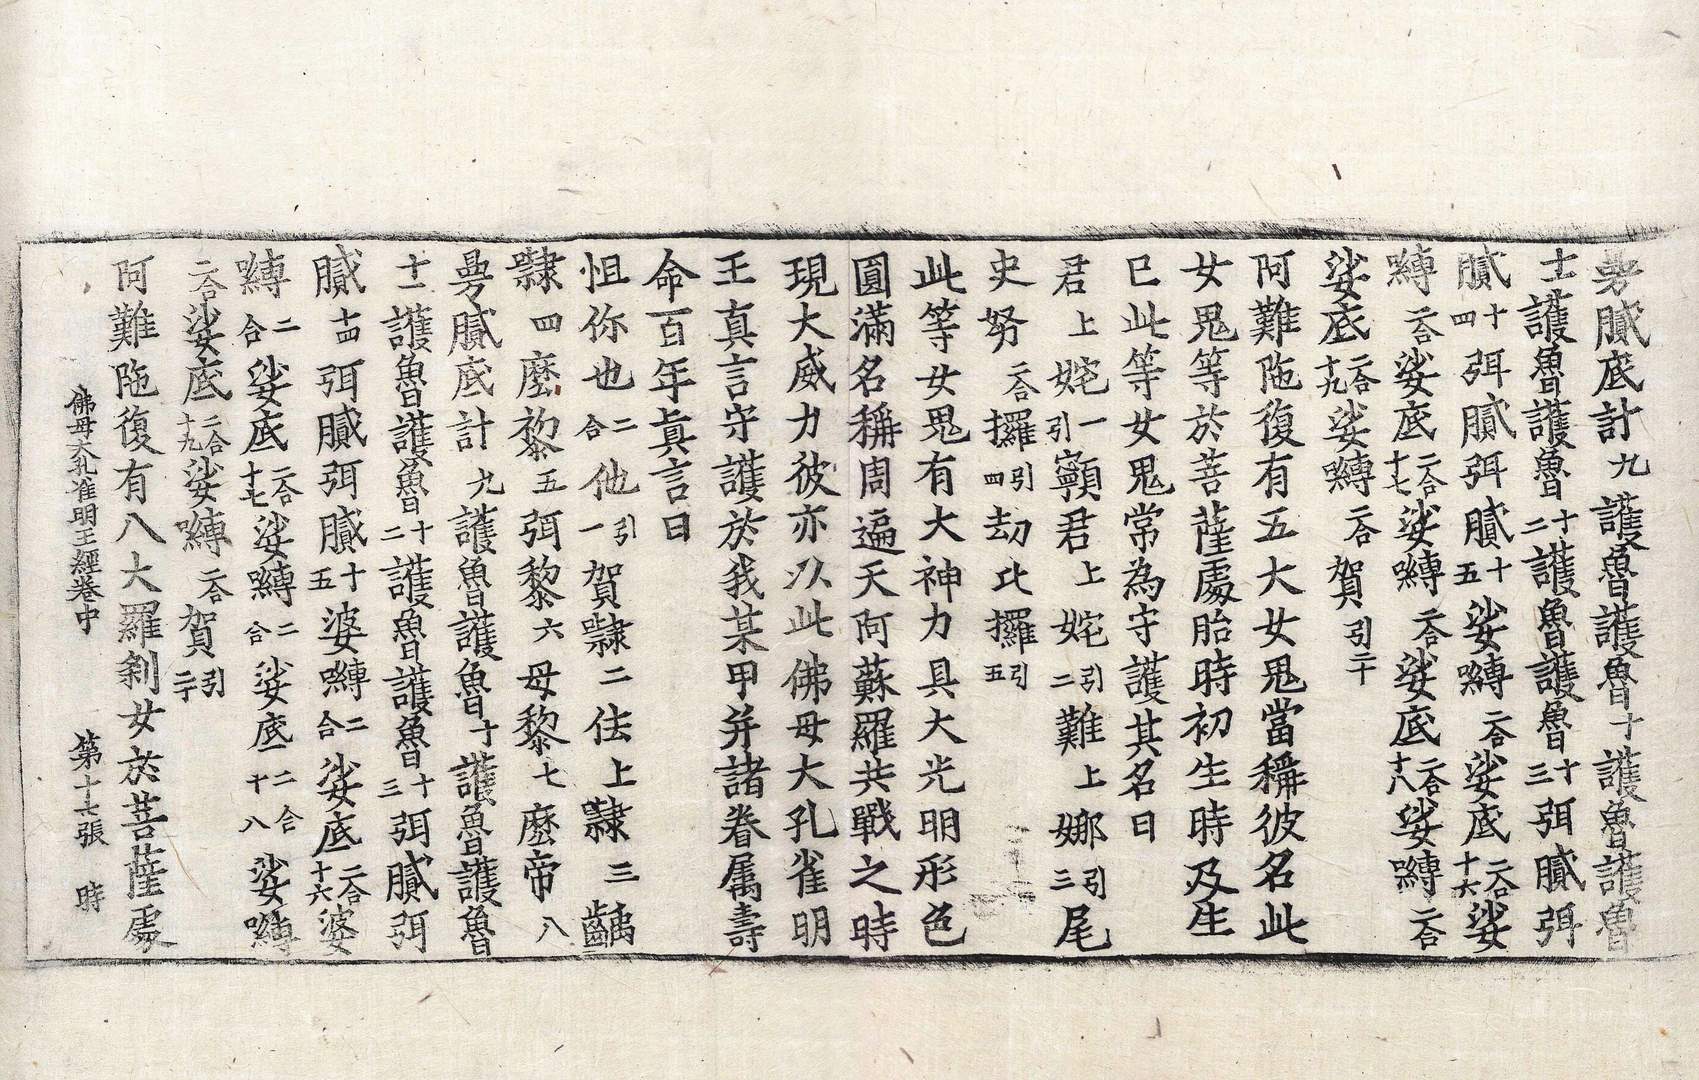 曼膩底計九護魯護魯十護魯護魯
十一護魯護魯十二護魯護魯十三弭膩弭
膩十四弭膩弭膩十五娑嚩二合娑底二合十六娑
嚩二合娑底二合十七娑嚩二合娑底二合十八娑嚩二合
娑底二合十九娑嚩二合賀引二十
阿難陁復有五大女鬼當稱彼名此
女鬼等於菩薩處胎時初生時及生
已此等女鬼常為守護其名曰
君上姹一引寧頁君上姹引二難上娜引三尾
史努二合攞引四劫比攞引五
此等女鬼有大神力具大光明形色
圓滿名稱周遍天阿蘇羅共戰之時
現大威力彼亦以此佛母大孔雀明
王真言守護於我某甲并諸眷属壽
命百年真言曰
怛你也二合他引一賀隸二佉上隸三齲
隸四麼黎五弭黎六母黎七麼帝八
曼膩底計九護魯護魯十護魯護魯
十一護魯護魯十二護魯護魯十三弭膩弭
膩十四弭膩弭膩十五娑嚩二合娑底二合十六娑
嚩二合娑底二合十七娑嚩二合娑底二合十八娑嚩
二合娑底二合十九娑嚩二合賀引二十
阿難陁復有八大羅剎女於菩薩處
佛母大孔雀明王經卷中 第十七張 時